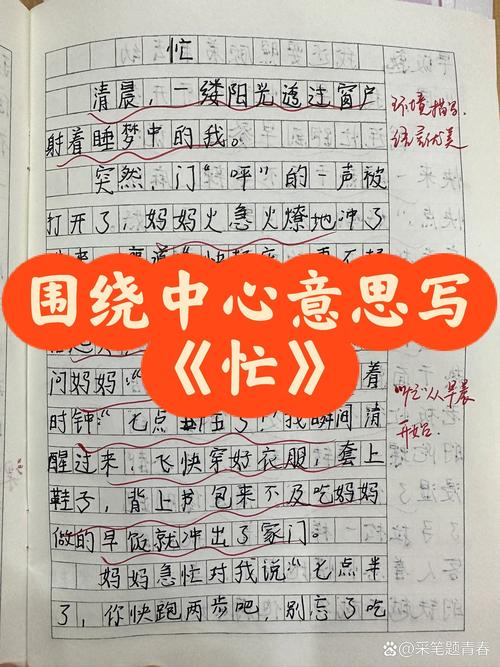 忙
清晨，一缕阳光透过窗户
射着睡梦中的我。
突然，门“呯”的一声被
打开了，妈妈火急火燎地冲了
围绕中心意思写
《忙》
问妈妈：“
着
时钟：“七点
了！”我瞬间清
醒过来，飞快穿好衣服，套上
鞋子，背上书包来不及吃妈妈
做的早饭就冲出了家门。
妈妈急忙对我说“七点半
了，你快跑两步吧，别忘了吃
环境描写，
优美
“忙”从早晨
开始。
@采笔题青春